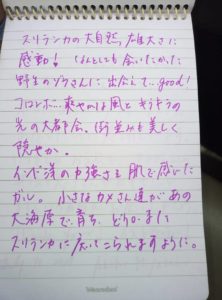 スリランカの大自然、雄大さに
感動！ なんとしても会いたかった
野生のゾウさんに出会えて…good!
コロンボ…爽やかな風とキラキラの
光の大都会、街並みも美しく
穏やか。
インド洋の力強さを肌で感じた
ゴール。小さなカメさん達があの
大海原で育ち、どうか また
スリランカに戻ってこられますように。